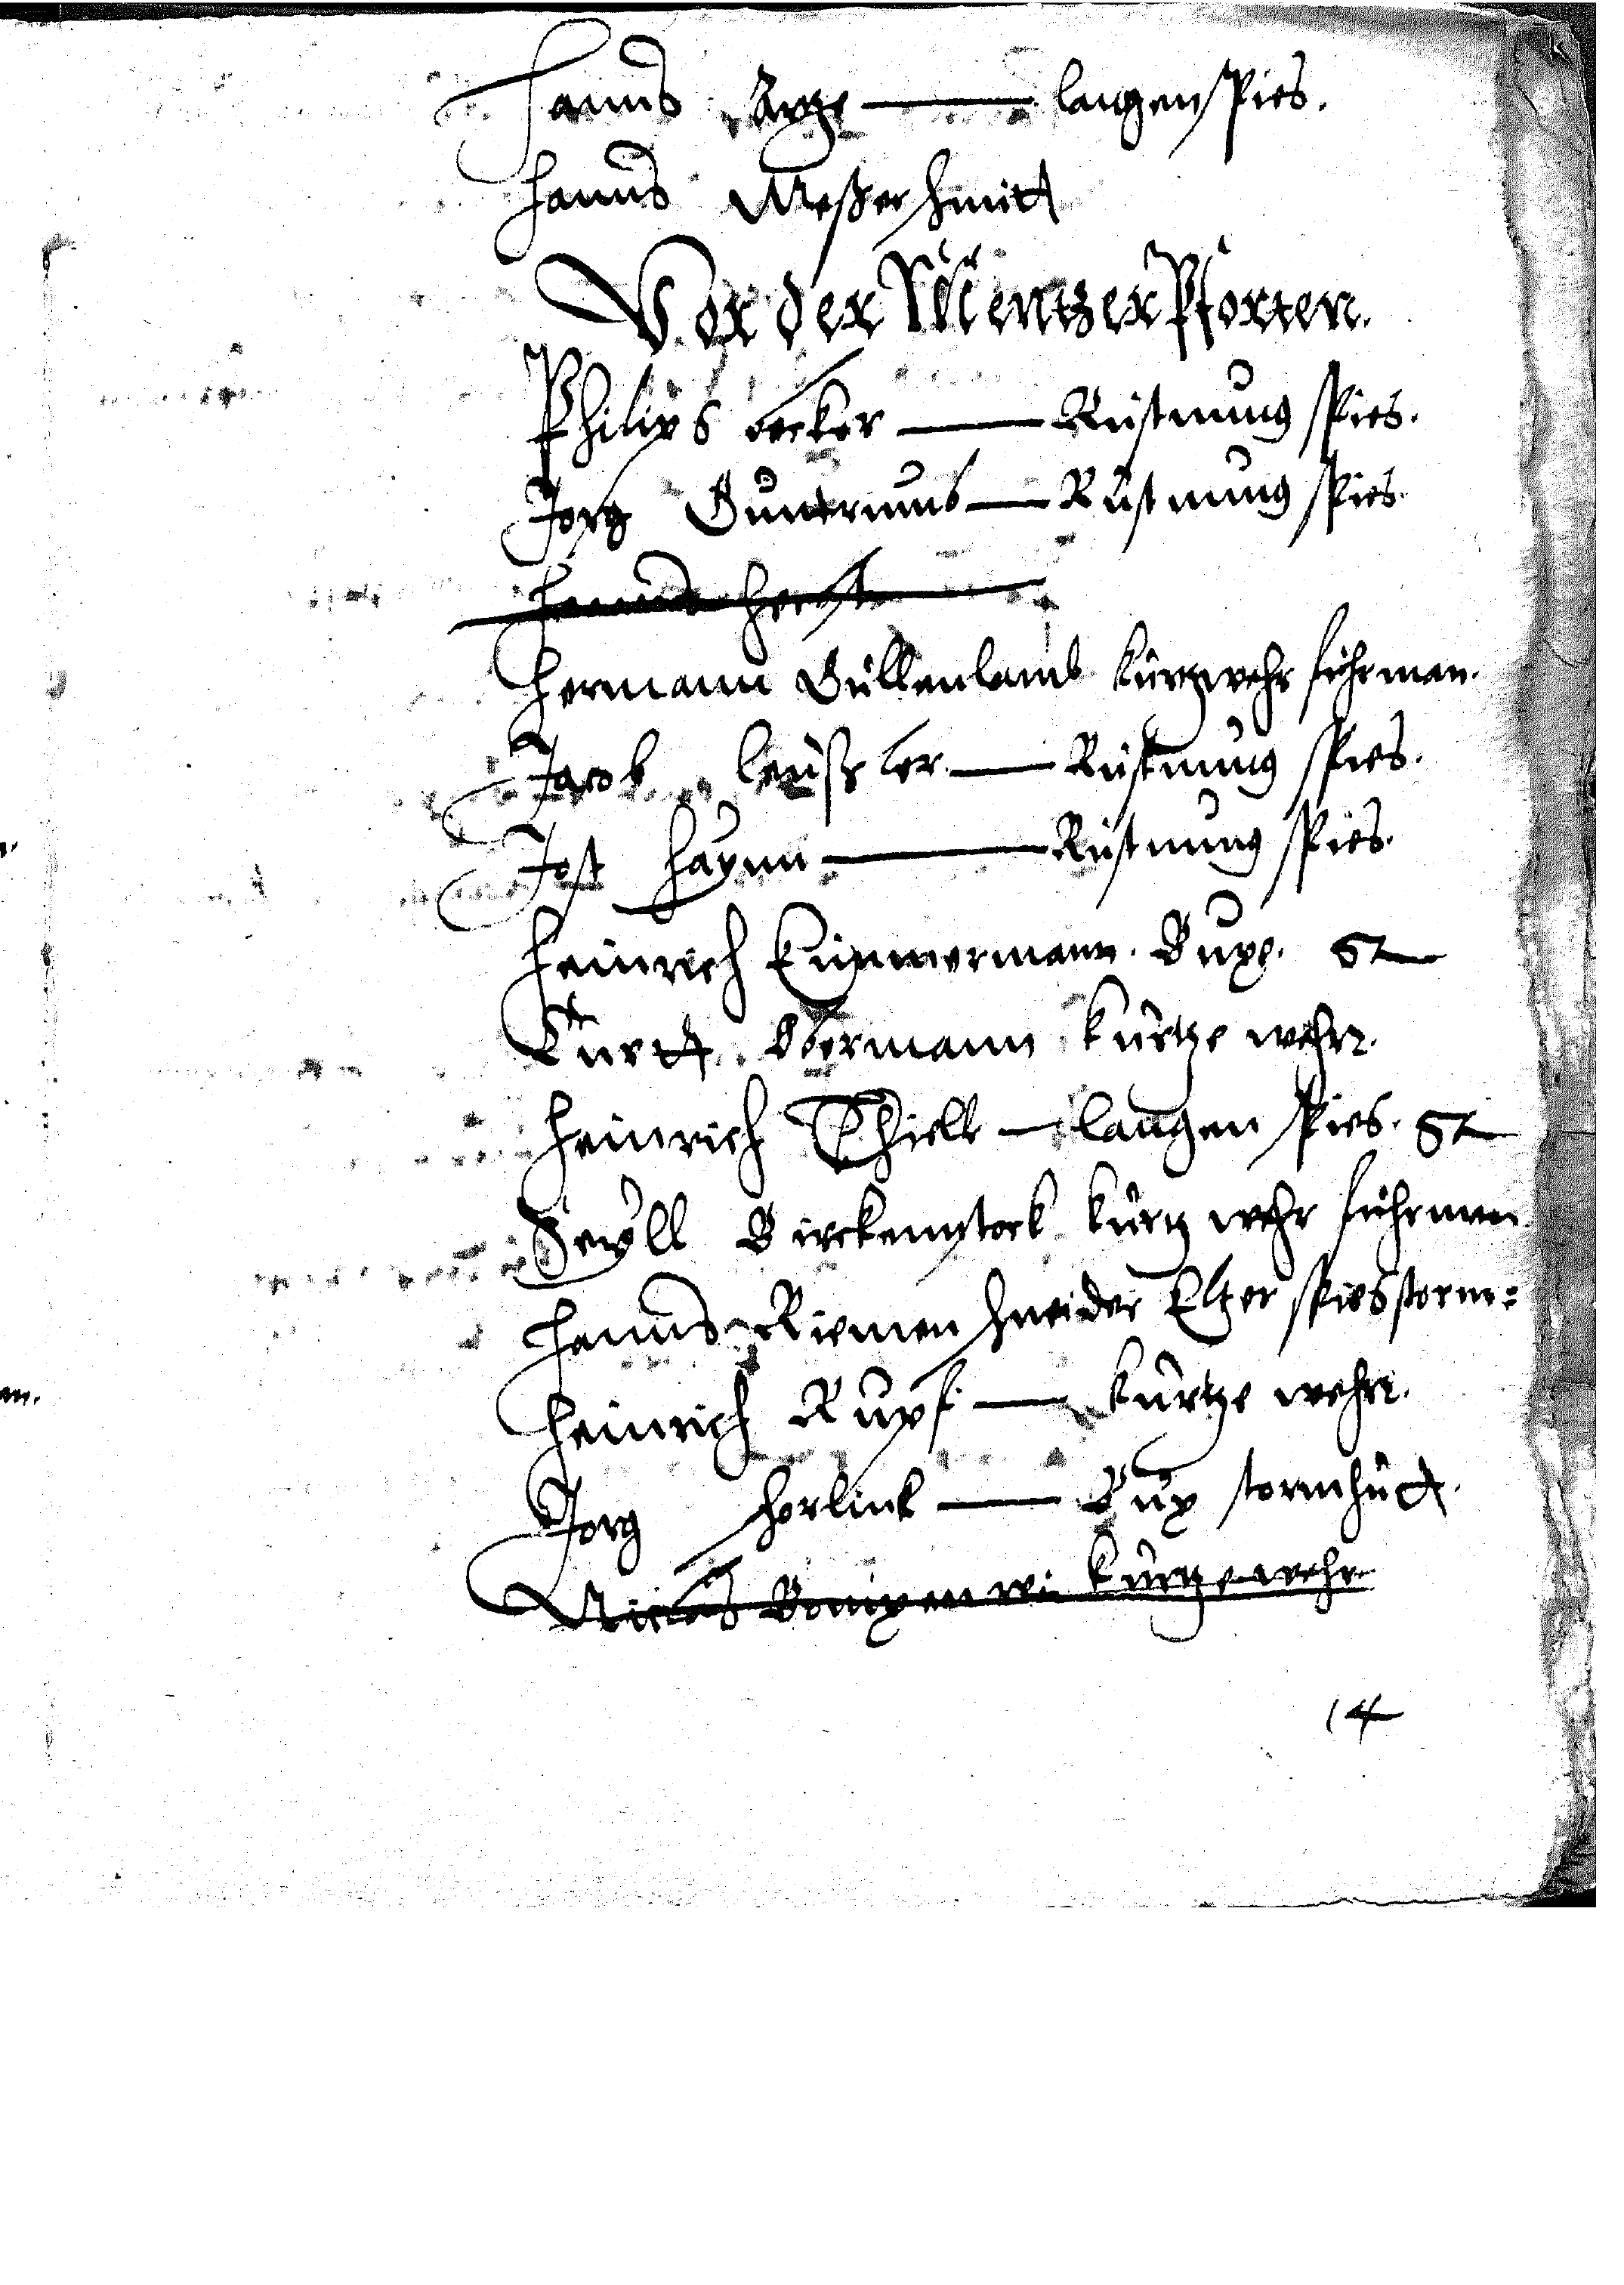 Hanns Kurtze — langen spies.
Hanns Meßerschmitt
Vor der Mentzer Pforten.
Philips Becker — Rüstnung spies.
Jorg Guntrumb — Rüstnung spies.
Hermann Güllenlamb kurtzwehr führman.
Jacob leußler — Rüstnung spies.
Jost Haynn — Rüstnung spies.
Heinrich Zimmermann. Buxe. St
Curtt Obermann kurtze wehr.
Heinrich Thiell — langen spies. St
Seyll Birckenstock kurtz wehr führman
Hanns Riemenschneider Elter spies storm:
Heinrich Rupf — kurtze wehr.
Jorg Horlink — Bux stormhutt.
Niclas kurtze wehr
14